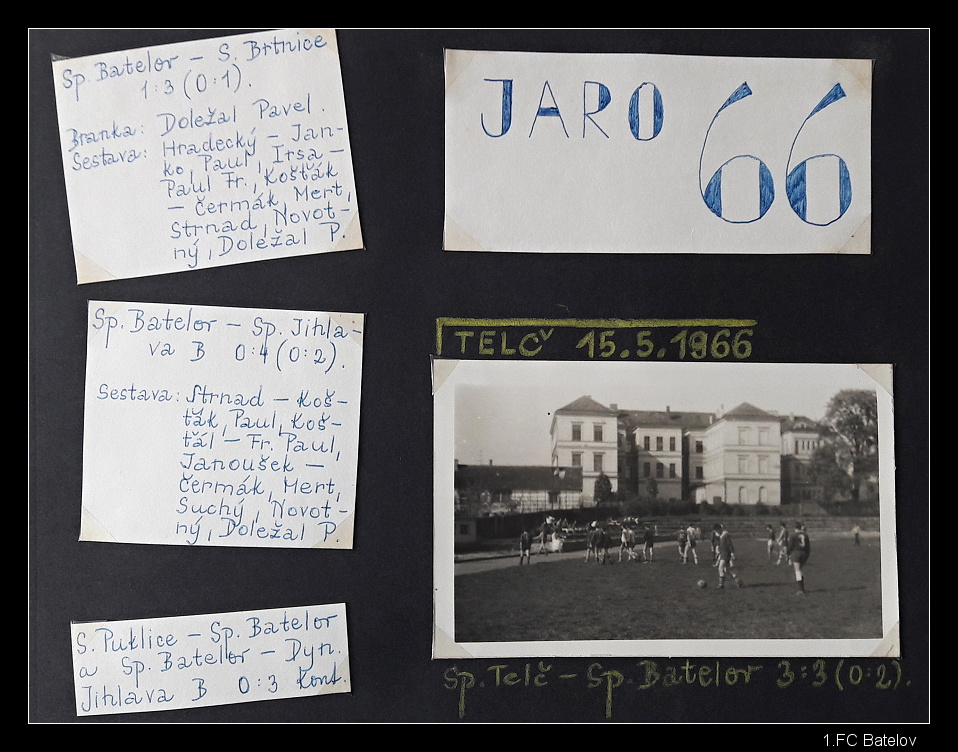 Sp. Batelov – S. Brtnice
1:3 (0:1).
Branka: Doležal Pavel.
Sestava: Hradecký – Jan-
ko, Paul, Irsa –
Paul Fr., Košťák
– Čermák, Mert,
Strnad, Novot-
ný, Doležal P.
JARO 66
Sp. Batelov – Sp. Jihla-
va B 0:4 (0:2).
Sestava: Strnad – Koš-
ťák, Paul, Koš-
ťál – Fr. Paul,
Janoušek –
Čermák, Mert,
Suchý, Novot-
ný, Doležal P.
TELČ 15.5.1966
Sp. Telč – Sp. Batelov 3:3 (0:2).
S. Puklice – Sp. Batelov
a Sp. Batelov – Dyn.
Jihlava B 0:3 Kont.
1.FC Batelov